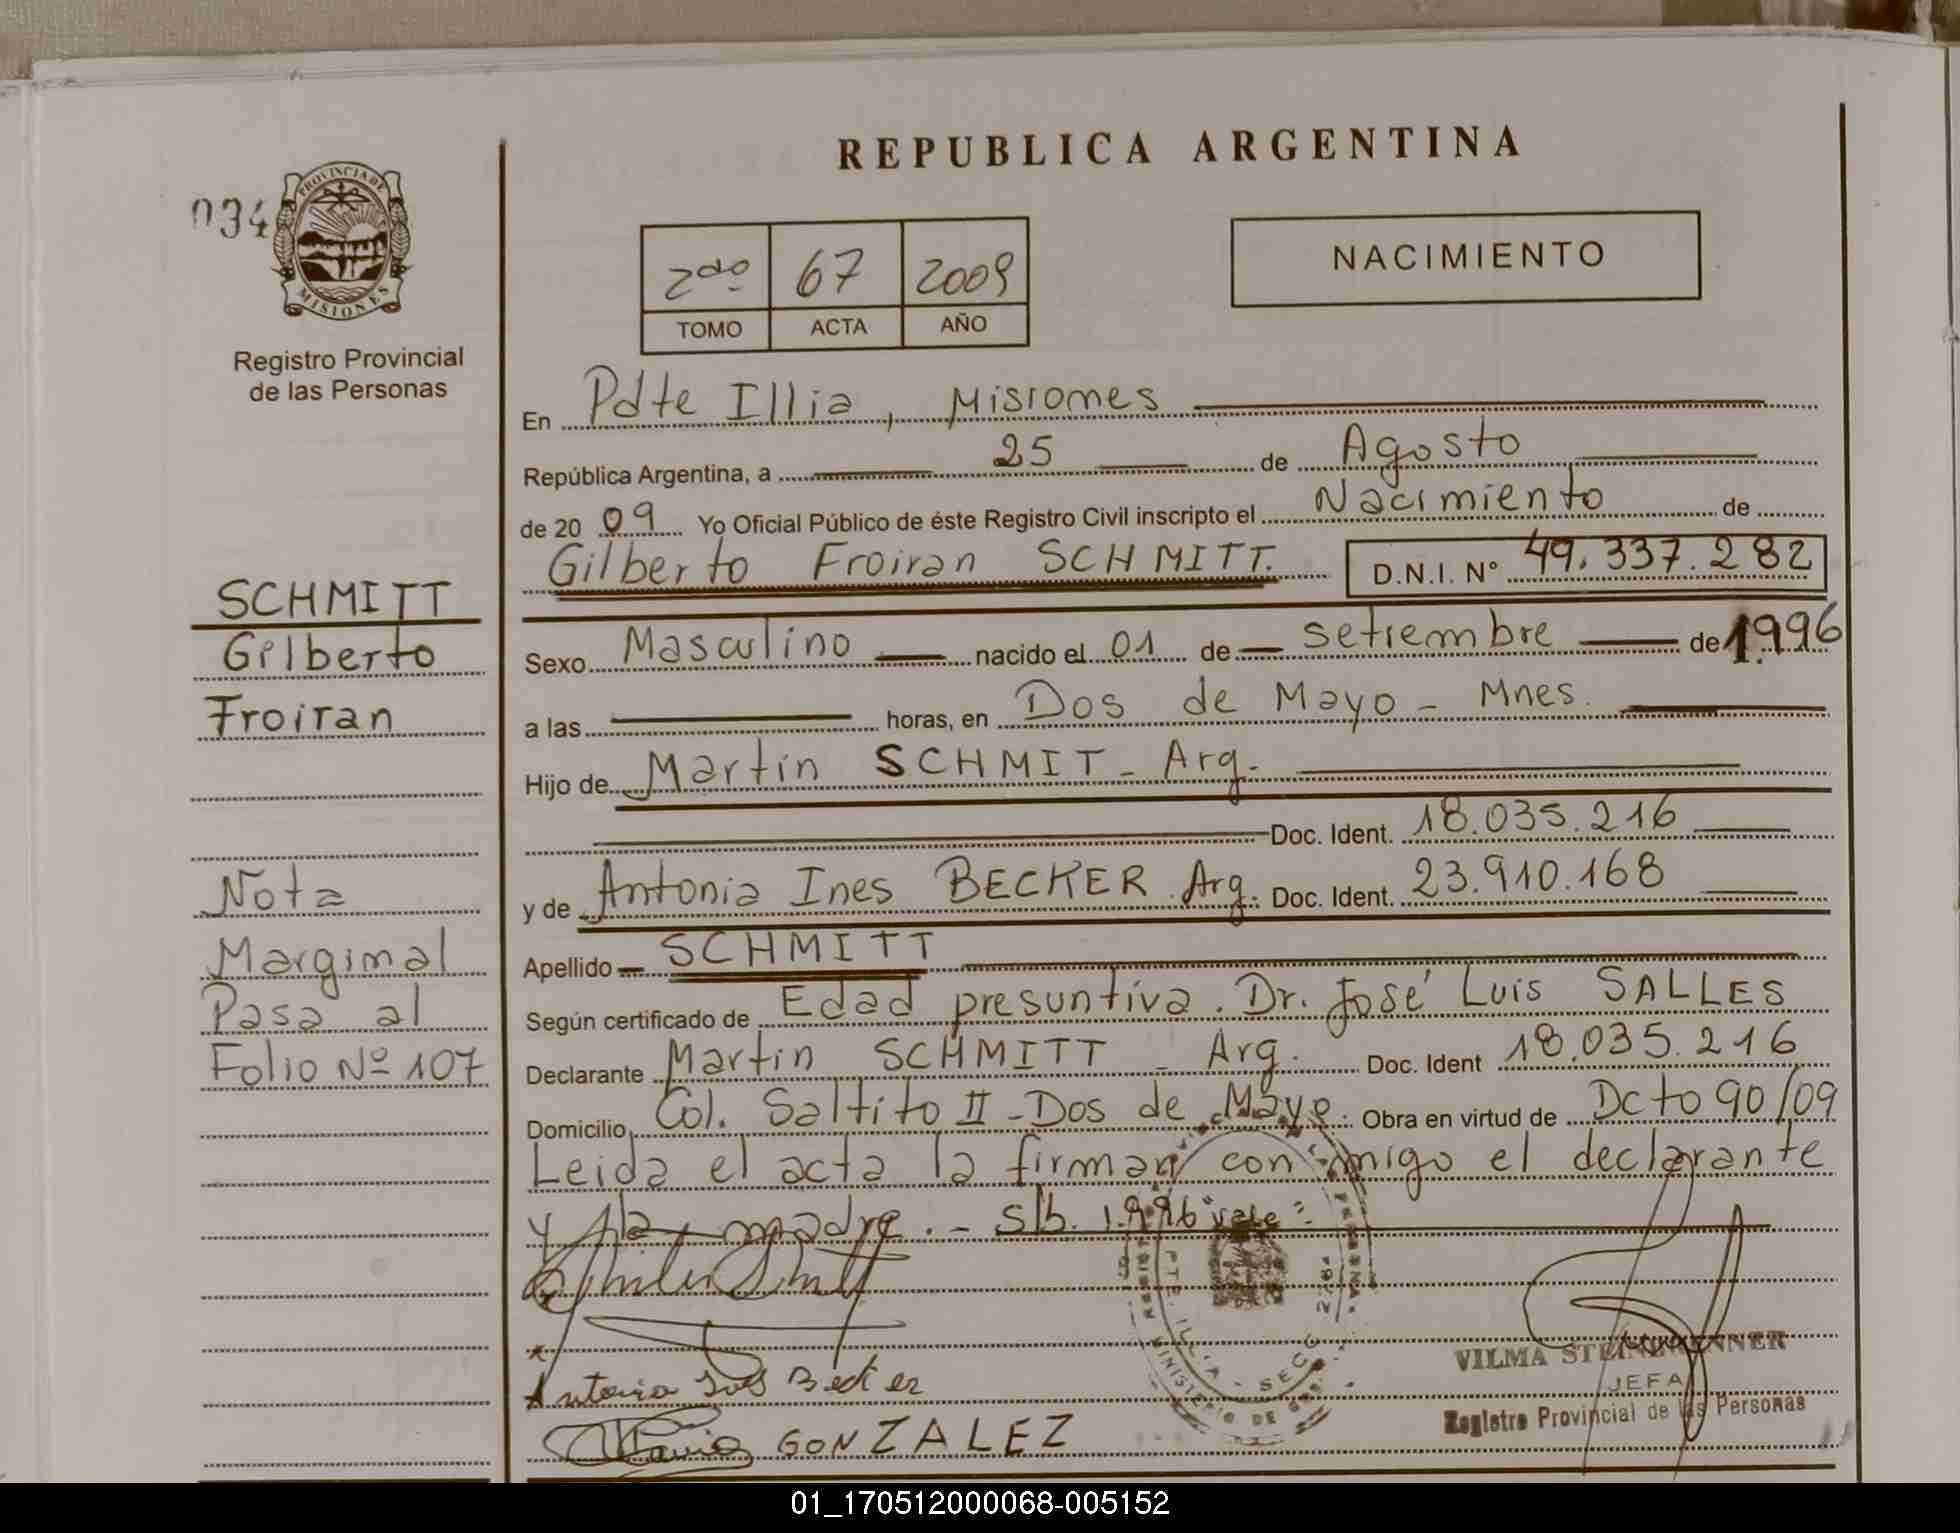 REPUBLICA ARGENTINA
034
PROVINCIA DE
MISIONES
Registro Provincial
de las Personas
2do 67 2009
TOMO ACTA AÑO
NACIMIENTO
En Pdte Illia, Misiones
República Argentina, a 25 de Agosto
de 2009 Yo Oficial Público de éste Registro Civil inscripto el Nacimiento de
Gilberto Froiran SCHMITT. D.N.I. Nº 49.337.282
SCHMITT
Gilberto
Froiran
Sexo Masculino nacido el 01 de setiembre de 1.996
a las horas, en Dos de Mayo - Mnes.
Hijo de Martin SCHMIT - Arg.
Doc. Ident. 18.035.216
y de Antonia Ines BECKER Arg. Doc. Ident. 23.910.168
Apellido SCHMITT
Según certificado de Edad presuntiva. Dr. José Luis SALLES
Declarante Martin SCHMITT - Arg. Doc. Ident 18.035.216
Domicilio Col. Saltito II - Dos de Mayo. Obra en virtud de Dcto 90/09
Leida el acta la firman con migo el declarante
y la madre. - s/b. 1.996 "vale"
Nota
Marginal
Pasa al
Folio Nº 107
Antonia Ines Becker
GONZALEZ
PTE. ILLIA - SECC
MINISTERIO DE GOB.
VILMA STEINBRENNER
JEFA
Registro Provincial de las Personas
01_170512000068-005152